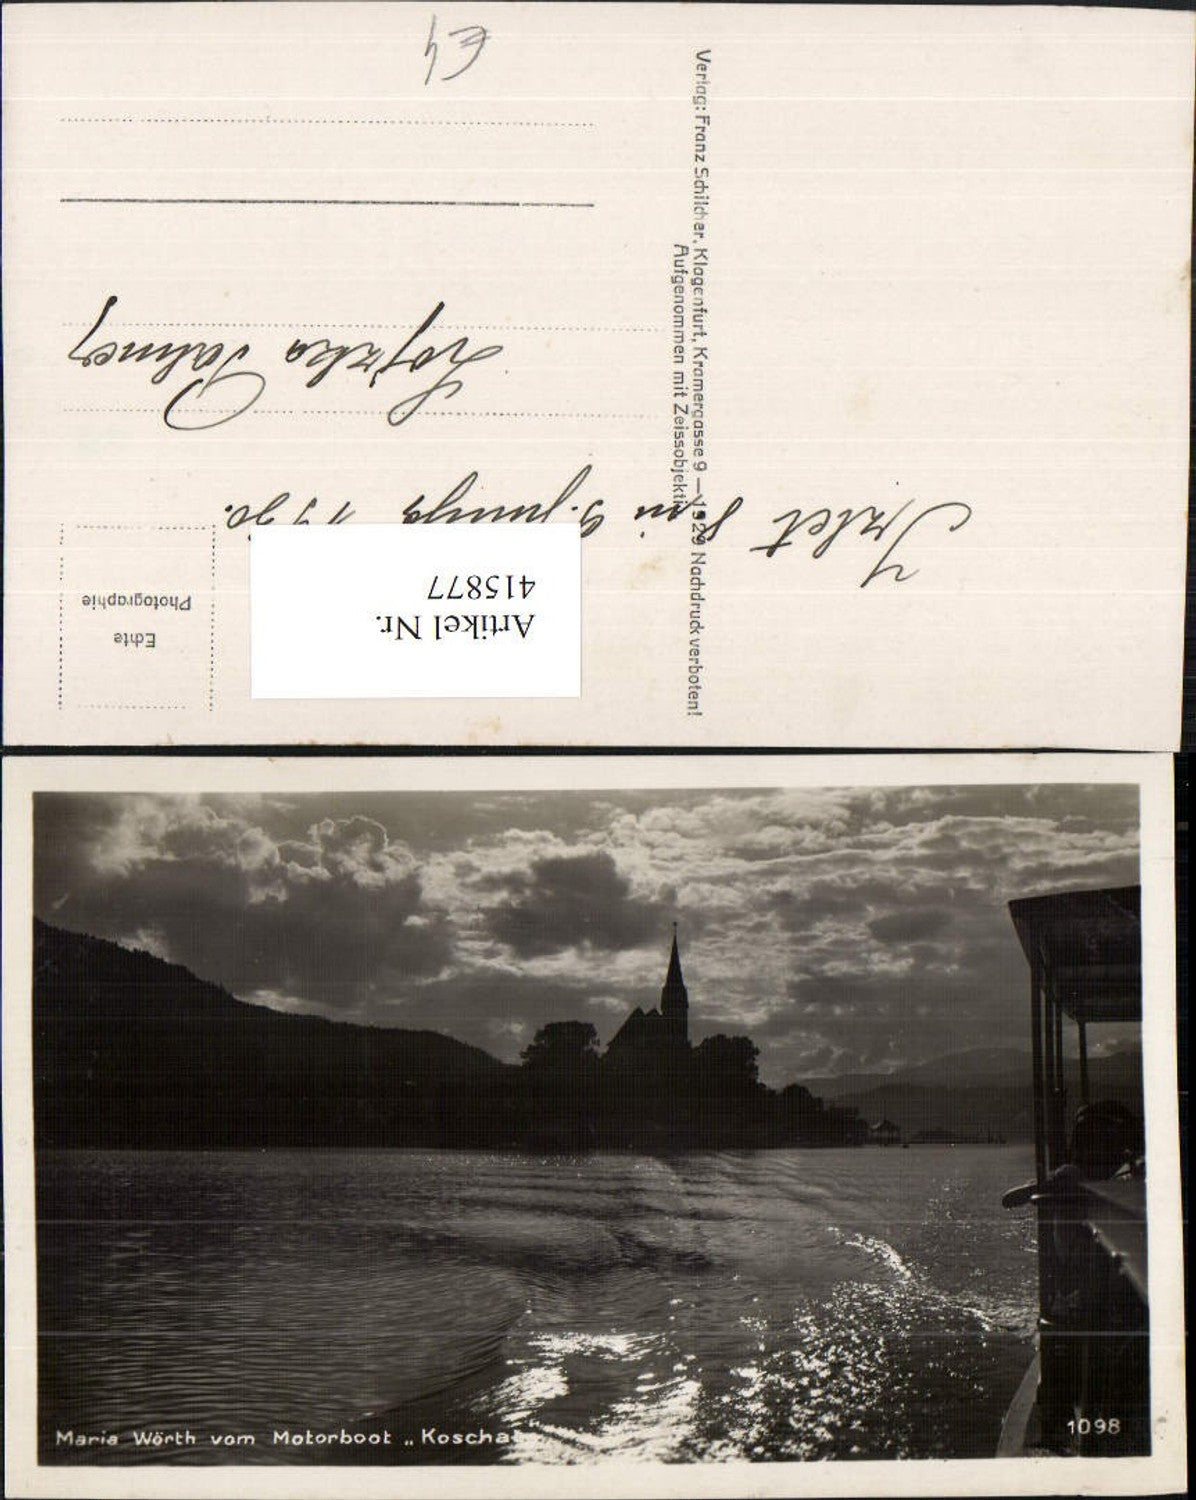 Echte
Photographie
Artikel Nr.
415877
Izlet 9. junija 1930.
Lojzka
Verlag: Franz Schilcher, Klagenfurt, Kramergasse 9 — 1929 Nachdruck verboten!
Aufgenommen mit Zeissobjektiv
Maria Wörth vom Motorboot „Koschat"
1098